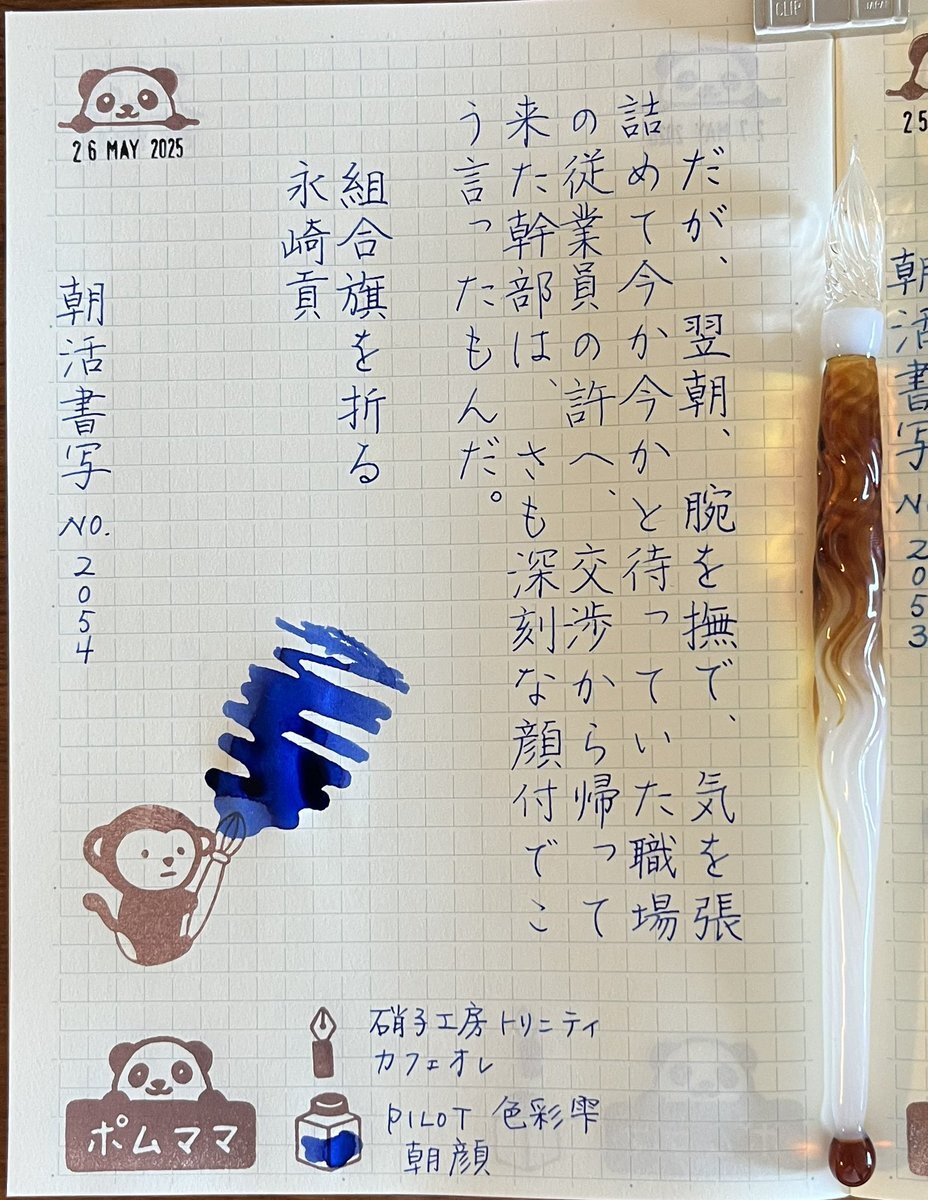 26 MAY 2025
だが、翌朝、腕を撫で、気を張
詰めて今か今かと待っていた職場
の従業員の許へ、交渉から帰って
来た幹部は、さも深刻な顔付でこ
う言ったもんだ。
組合旗を折る
永崎貢
朝活書写 NO.2054
硝子工房トリニティ
カフェオレ
PILOT 色彩雫
朝顔
ポムママ
CLIP
JAPAN
25
朝活書写 NO.2053